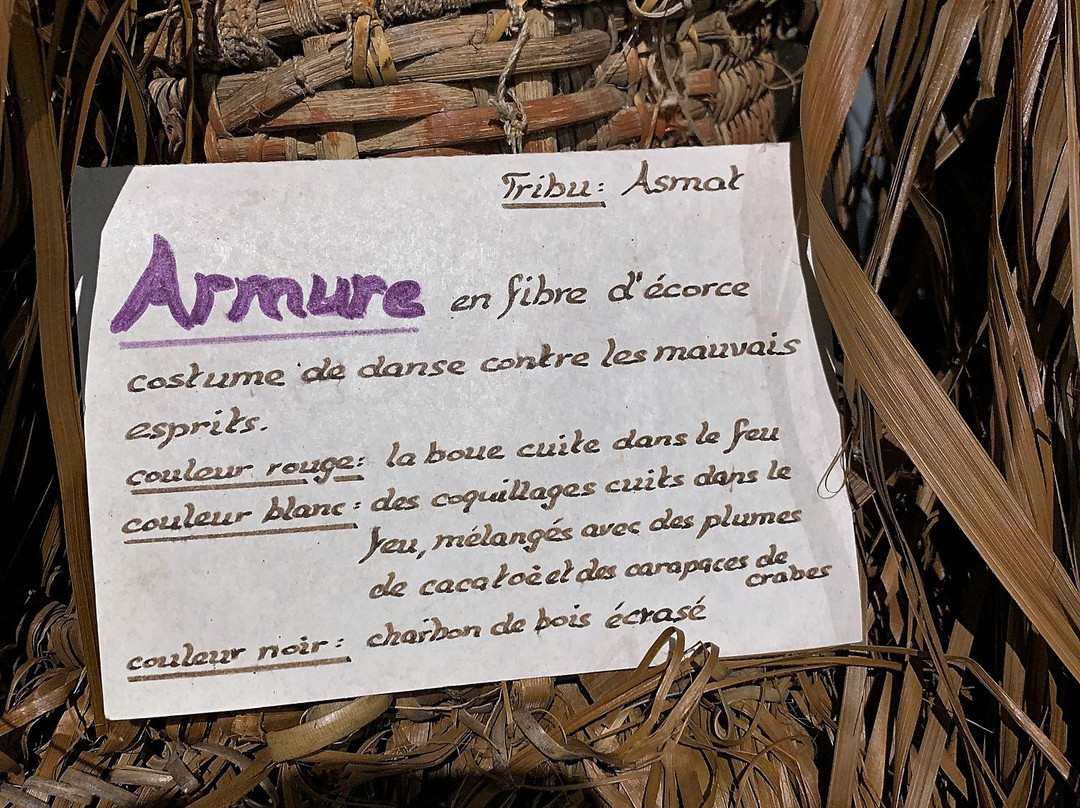 Tribu: Asmat
Armure en fibre d'écorce
costume de danse contre les mauvais
esprits.
couleur rouge: la boue cuite dans le feu
couleur blanc: des coquillages cuits dans le
feu, mélangés avec des plumes
de cacatoè et des carapaces de
crabes
couleur noir: charbon de bois écrasé